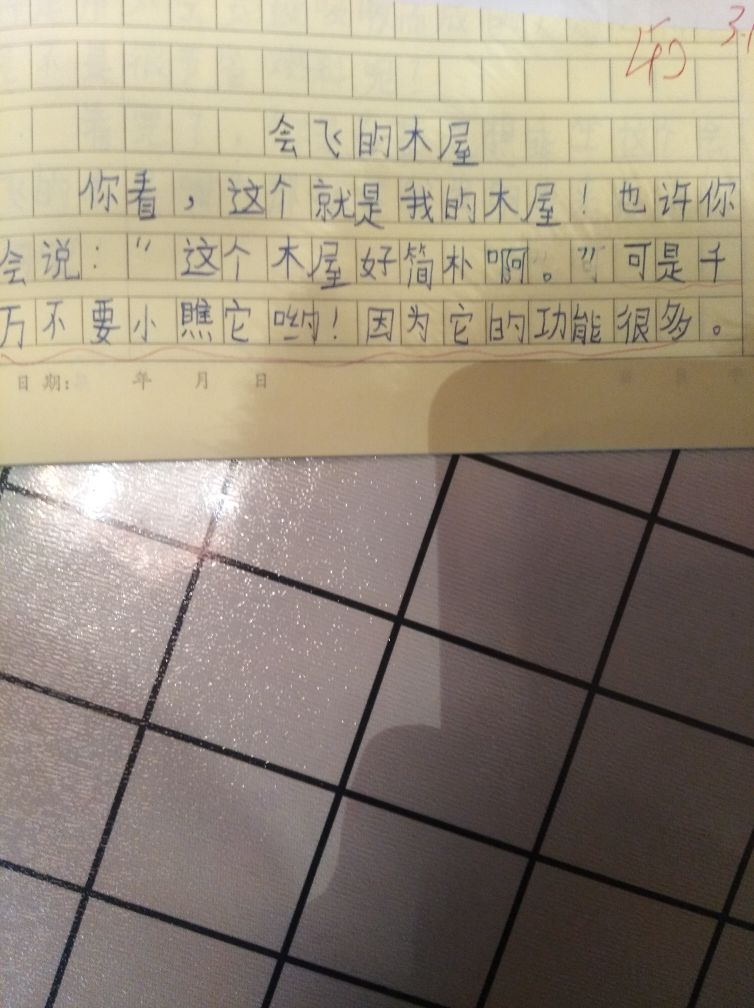 会飞的木屋
你看，这个就是我的木屋！也许你
会说：“这个木屋好简朴啊。”可是千
万不要小瞧它哟！因为它的功能很多。
日期: 年 月 日